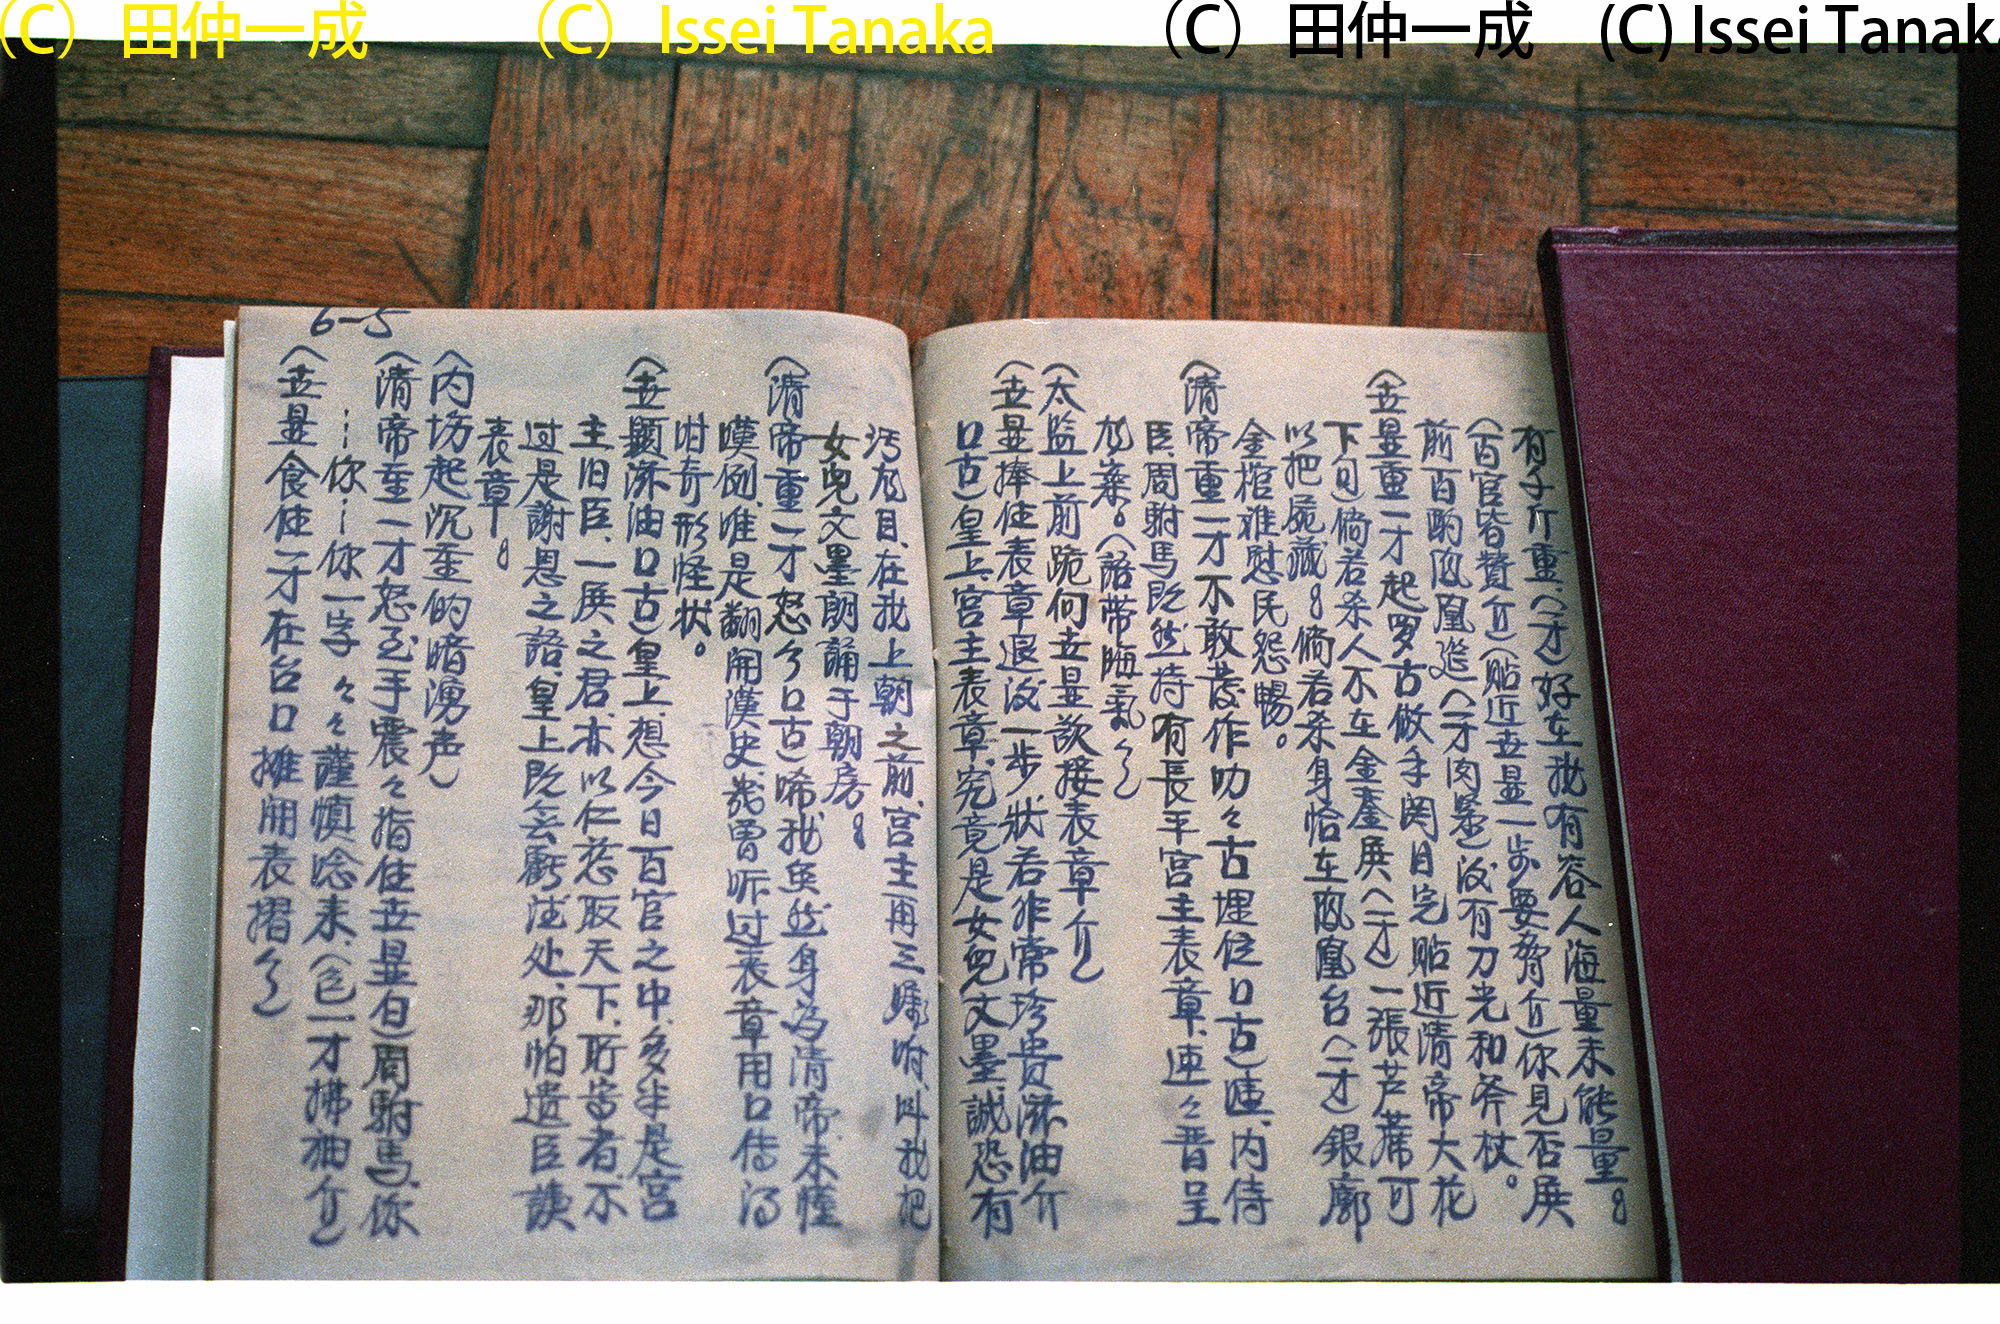 (C) 田仲一成 (C) Issei Tanaka (C) 田仲一成 (C) Issei Tanaka
有千斤重、(一才)好在我有容人海量未能量。
(百官皆贊介)(貼近世显一步要脅介)你見否展
前百酌凤凰筵(一才肉緊)没有刀光和斧杖。
(世显重一才起罗古做手関目完貼近清帝大花
下句)倘若杀人不在金銮展(一才)一張芦蓆可
以把屍藏。倘若杀身恰在凤凰台(一才)銀廊
金棺难慰民怨暢。
(清帝重一才不敢發作叻々古埋位口古)哎、内侍
臣、周駙馬既然持有長平宫主表章、速々晋呈
(語带晦氣介)
(太监上前跪向世显欲接表章介)
(世显捧住表章退没一步状若非常珍贵淋油介
口古)皇上、宫主表章、究竟是女兒文墨誠恐有
污龙目、在我上朝之前、宫主再三嘱咐、叫我把
女兒文墨朗誦于朝房。
(清帝重一才怒介口古)唏、我矣然身為清帝、未惶
嘆倒、唯是翻開漢史、幾曾听过表章用口传
咁奇形怪状。
(世顯淋油口古)皇上、想今日百官之中、多半是宫
主旧臣、一展之君、亦以仁慈取天下、所皆者、不
过是謝恩之語、皇上既無虧德处、那怕遗臣讀
表章。
(内場起沉重的暗湧声)
(清帝重一才怒至手震々指住世显白)周駙馬、你
…你…你一字々々謹慎唸来、(包一才拂袖介)
(世显食住一才在台口摊開表摺介)
6-5